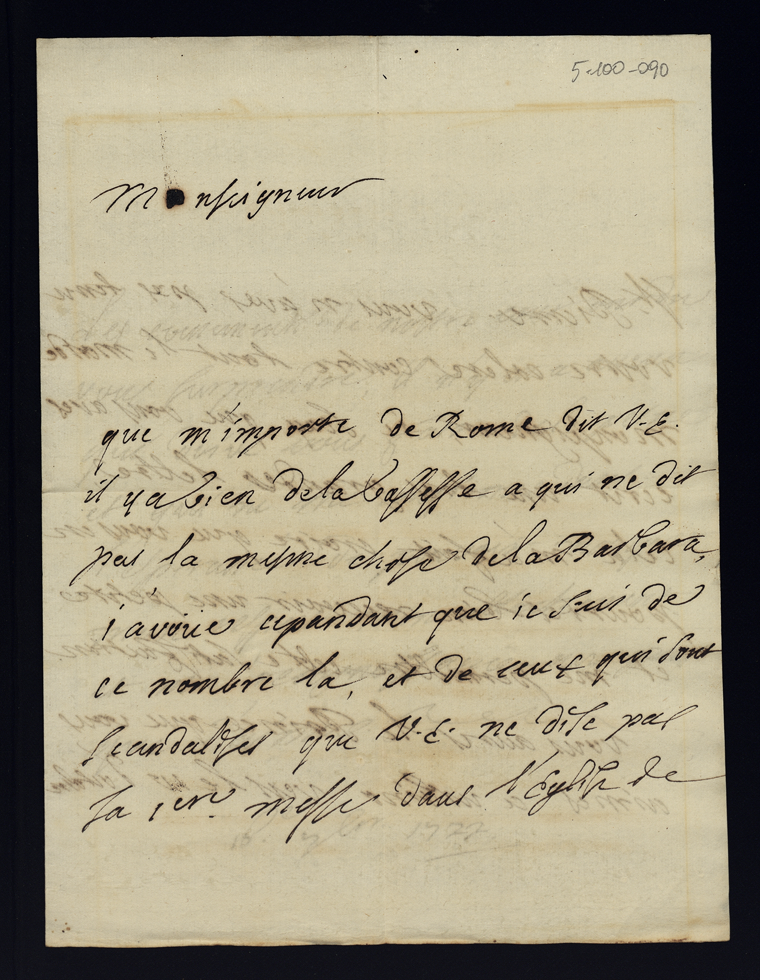 5-100-090
Monseigneur
que m'importe de Rome dit V.E.
il y a bien de la bassesse a qui ne dit
pas la mesme chose de la Barbara,
j'avoüe cepandant que je suis de
ce nombre la, et de ceux qui sont
scandalises que V.E. ne dise pas
sa 1ere. messe dans l'Eglise de